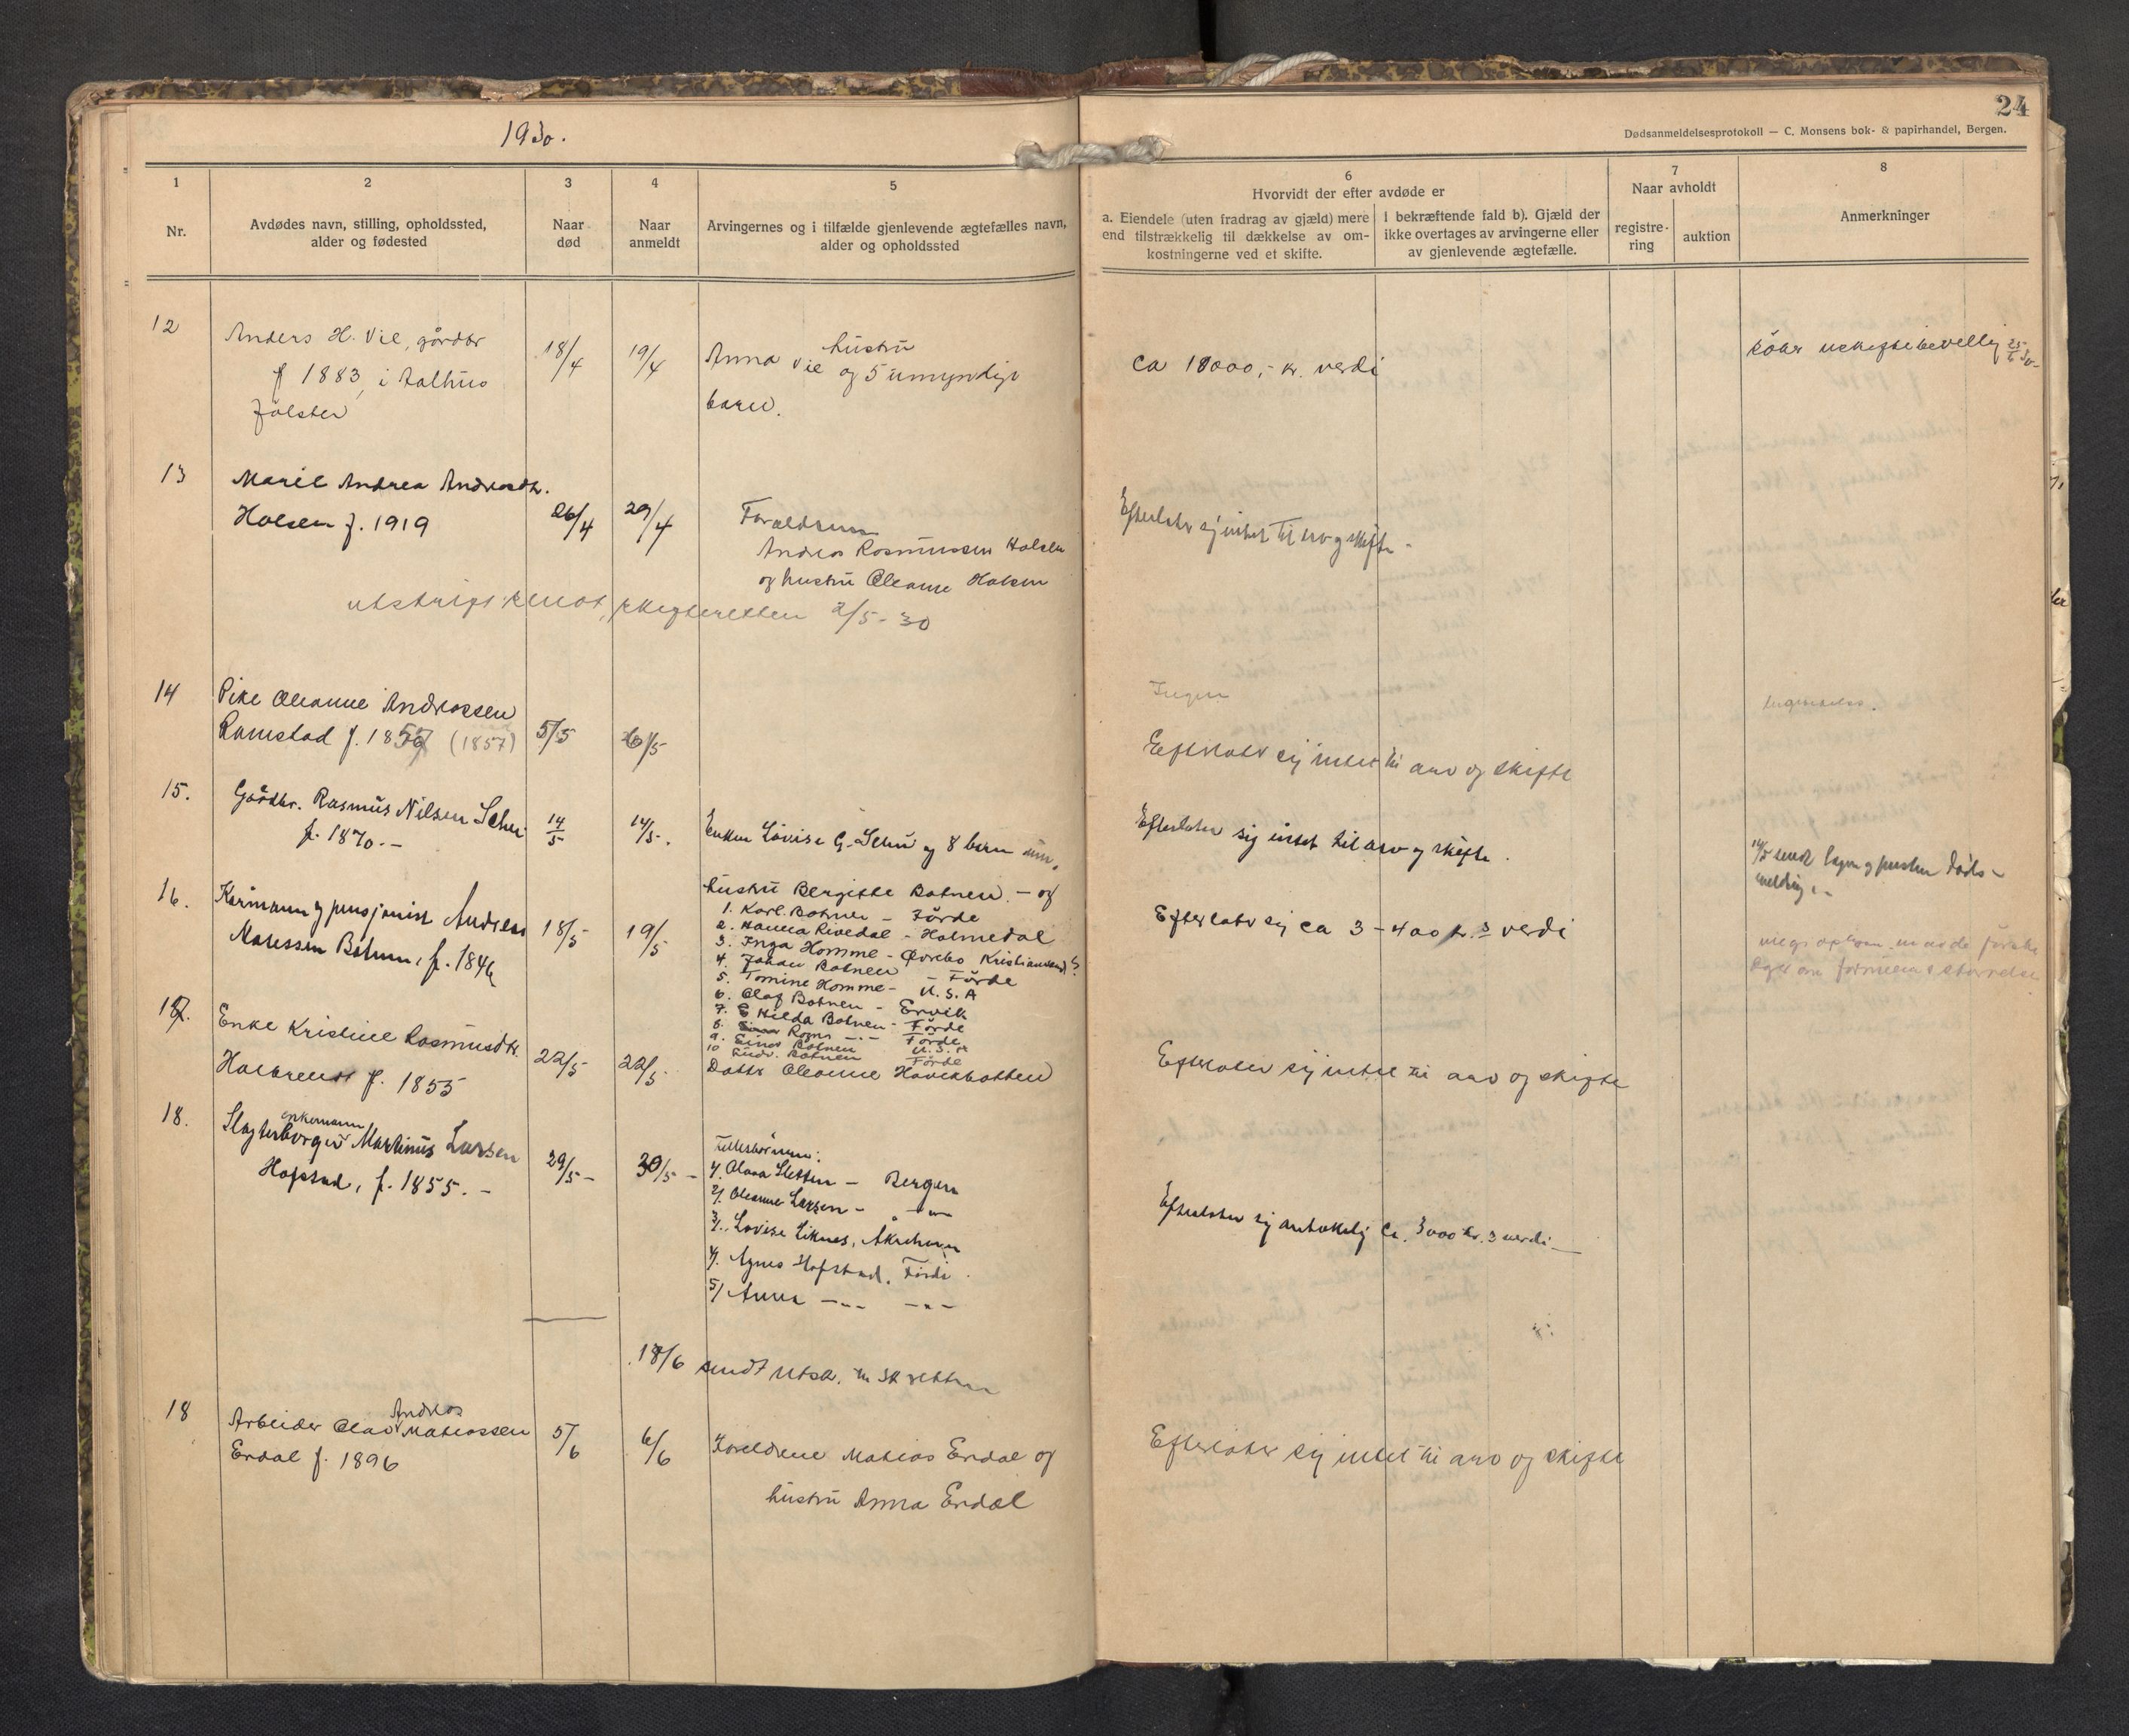 24
1930.
Dødsanmeldelsesprotokoll — C. Monsens bok- & papirhandel, Bergen.
1
Nr.
2
Avdødes navn, stilling, opholdssted,
alder og fødested
3
Naar
død
4
Naar
anmeldt
5
Arvingernes og i tilfælde gjenlevende ægtefælles navn,
alder og opholdssted
6
Hvorvidt der efter avdøde er
a. Eiendele (uten fradrag av gjæld) mere
end tilstrækkelig til dækkelse av om-
kostningerne ved et skifte.
i bekræftende fald b). Gjæld der
ikke overtages av arvingerne eller
av gjenlevende ægtefælle.
7
Naar avholdt
registre-
ring
auktion
8
Anmerkninger
12
Anders H. Vie, gårdbr
f 1883, i Aalhus
Jølster
18/4
19/4
hustru
Anna Vie og 5 umyndige
barn.
ca 18000,- kr. verdi
uskiftebevilling
13
Marie Andrea Andreasdtr.
Holsen f. 1919
26/4
29/4
Foreldrene
Andreas Rasmussen Holsen
og hustru Oleanne Holsen
Efterlater sig intet til arv og skifte -
utskrift sendt skifteretten 2/5 - 30
14
Pike Oleanne Andreassen
Ramstad f. 1857 (1857)
5/5
6/5
Ingen
Efterlater sig intet til arv og skifte
15.
Gårdbr. Rasmus Nilsen
f. 1870. -
14/5
14/5.
Enken Lovise G. og 8 barn
Efterlater sig intet til arv og skifte.
14/5 sendt
melding. -
16.
Kårmann og pensjonist Andreas
Botnen, f. 1846
18/5
19/5
hustru Bergitte Botnen. - og
1. Karl Botnen - Førde
2. Hanna Rivedal - Holmedal
3. Inga Homme - Øvrebø Kristiansand S?
4. Johan Botnen - Førde
5. Tomine Homme - U. S. A
6. Olaf Botnen - Ervik
7. Hilda Botnen - Førde
8. - " - Førde
9. Einar Botnen U. S. A
10 Andr. Botnen Førde
Efterlater sig ca 3 - 400 kr.s verdi
17.
Enke Kristine Rasmusdtr.
f. 1855
22/5
22/5
Datter Oleanne
Efterlater sig intet til arv og skifte
18.
enkemann
Martinus Larsen
Hafstad, f. 1855. -
29/5 -
30/5 -
Fellesbarn:
1/. Olava Sletten - Bergen
2/. Oleanne Larsen - - " -
3/. Lovise Liknes,
4/. Agnes Hafstad. Førde.
5/ Anna - " - - " -
Efterlater sig antakelig ca. 3000 kr.s verdi -
18/6 sendt utskr. til sk retten
18
Andreas
Arbeider Olav Matiassen
Erdal f. 1896
5/6
6/6
Foreldrene Matias Erdal og
hustru Anna Erdal
Efterlater sig intet til arv og skifte